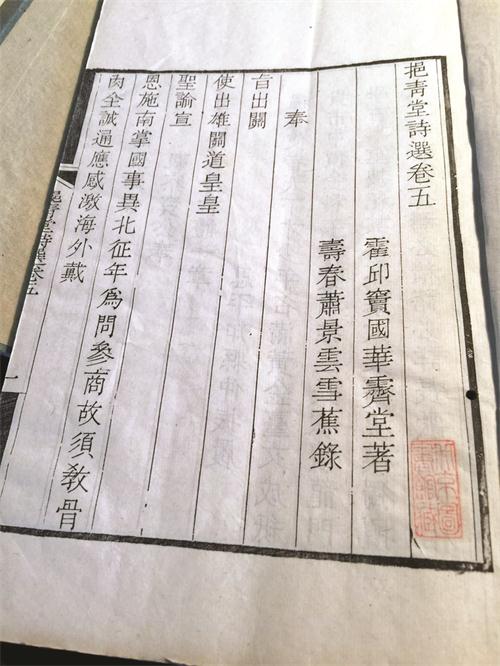 挹青堂詩選卷五
霍邱竇國華霽堂著
壽春蕭景雲雪蕉錄
奉
旨出關
使出雄關道皇皇
聖諭宣
恩施南掌國事異北征年爲問參商故須敎骨
肉全誠通應感激海外戴
挹青堂詩選卷五
一